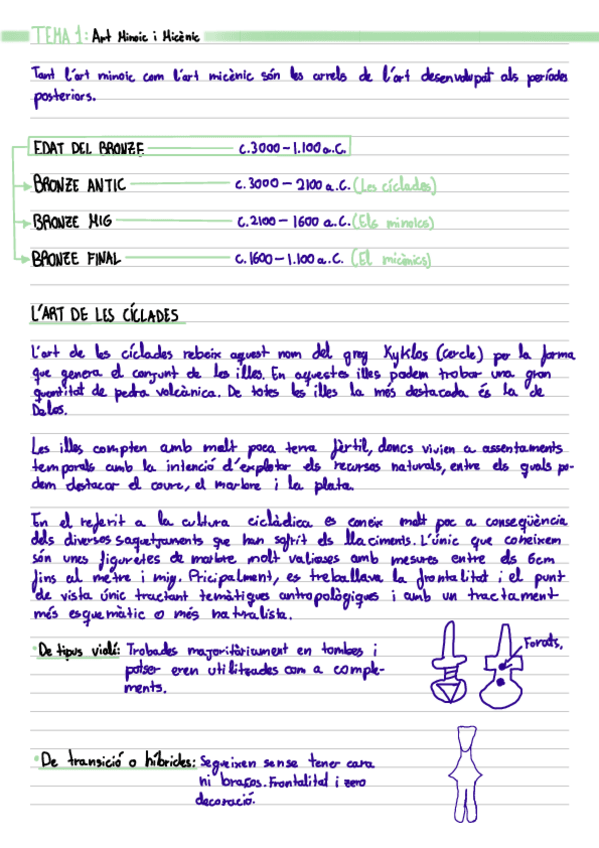 TEMA 1: Art Minoic i Micènic
Tant l'art minoic com l'art micènic són les arrels de l'art desenvolupat als períodes
posteriors.
EDAT DEL BRONZE c.3000-1.100 a.C.
BRONZE ANTIC c.3000-2100 a.C. (Les cíclades)
BRONZE MIG c.2100-1600 a.C. (Els minoics)
BRONZE FINAL c.1600-1.100 a.C. (El micènics)
L'ART DE LES CÍCLADES
L'art de les cíclades rebeix aquest nom del greg Kyklos (cercle) per la forma
que genera el conjunt de les illes. En aquestes illes podem trobar una gran
quantitat de pedra volcànica. De totes les illes la més destacada és la de
Delos.
Les illes compten amb molt poca terra fèrtil, doncs vivien a assentaments
temporals amb la intenció d'explotar els recursos naturals, entre els quals po-
dem destacar el coure, el marbre i la plata.
En el referit a la cultura ciclàdica es coneix molt poc a conseqüència
dels diversos saquetjaments que han sofrit els llaciments. L'únic que coneixem
són unes figuretes de marbre molt valioses amb mesures entre els 6cm
fins al metre i mig. Pricipalment, es treballava la frontalitat i el punt
de vista únic tractant temàtiques antropològiques i amb un tractament
més esquemàtic o més naturalista.
De tipus violí: Trobades majoritàriament en tombes i
potser eren utilitzades com a comple-
ments.
Forats.
De transició o híbrides: Segueixen sense tener cara
ni braços. Frontalitat i zero
decoració.